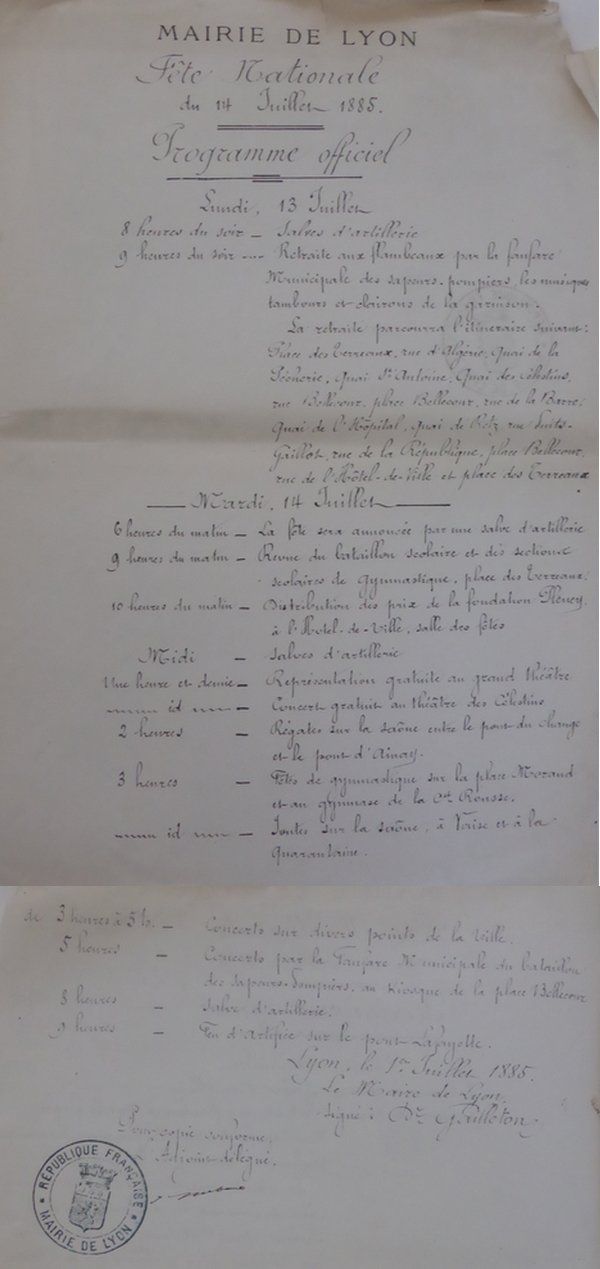 MAIRIE DE LYON
Fête Nationale
du 14 Juillet 1885.
Programme officiel
Lundi, 13 Juillet
8 heures du soir — Salves d'artillerie
9 heures du soir — Retraite aux flambeaux par la fanfare
Municipale des sapeurs-pompiers, les musiques
tambours et clairons de la garnison.
La retraite parcourra l'itinéraire suivant:
Place des Terreaux, rue d'Algérie, Quai de la
Pêcherie, Quai St Antoine, Quai des Célestins,
rue Bellecour, place Bellecour, rue de la Barre,
Quai de l'Hôpital, Quai de Retz, rue Puits-
Gaillot, rue de la République, place Bellecour,
rue de l'Hôtel-de-Ville et place des Terreaux
— Mardi, 14 Juillet —
6 heures du matin — La fête sera annoncée par une salve d'artillerie
9 heures du matin — Revue du bataillon scolaire et des sections
scolaires de gymnastique, place des Terreaux.
10 heures du matin — Distribution des prix de la fondation
à l'Hotel-de-Ville, salle des fêtes
Midi — Salves d'artillerie
Une heure et demie — Représentation gratuite au grand théâtre
id — Concert gratuit au théâtre des Célestins
2 heures — Régates sur la saône entre le pont du Change
et le pont d'Ainay.
3 heures — Fêtes de gymnastique sur la place Morand
et au gymnase de la Cx Rousse.
id — Joutes sur la saône, à Vaise et à la
Quarantaine.
de 3 heures à 5 h. — Concerts sur divers points de la Ville.
5 heures — Concerts par la Fanfare Municipale du bataillon
des sapeurs-Pompiers, au Kiosque de la place Bellecour
8 heures — Salve d'artillerie.
9 heures — Feu d'artifice sur le pont Lafayette.
Lyon, le 1er Juillet 1885.
Le Maire de Lyon,
Signé: Dr Gailleton
Pour copie conforme,
Adjoint délégué,
RÉPUBLIQUE FRANÇAISE
MAIRIE DE LYON